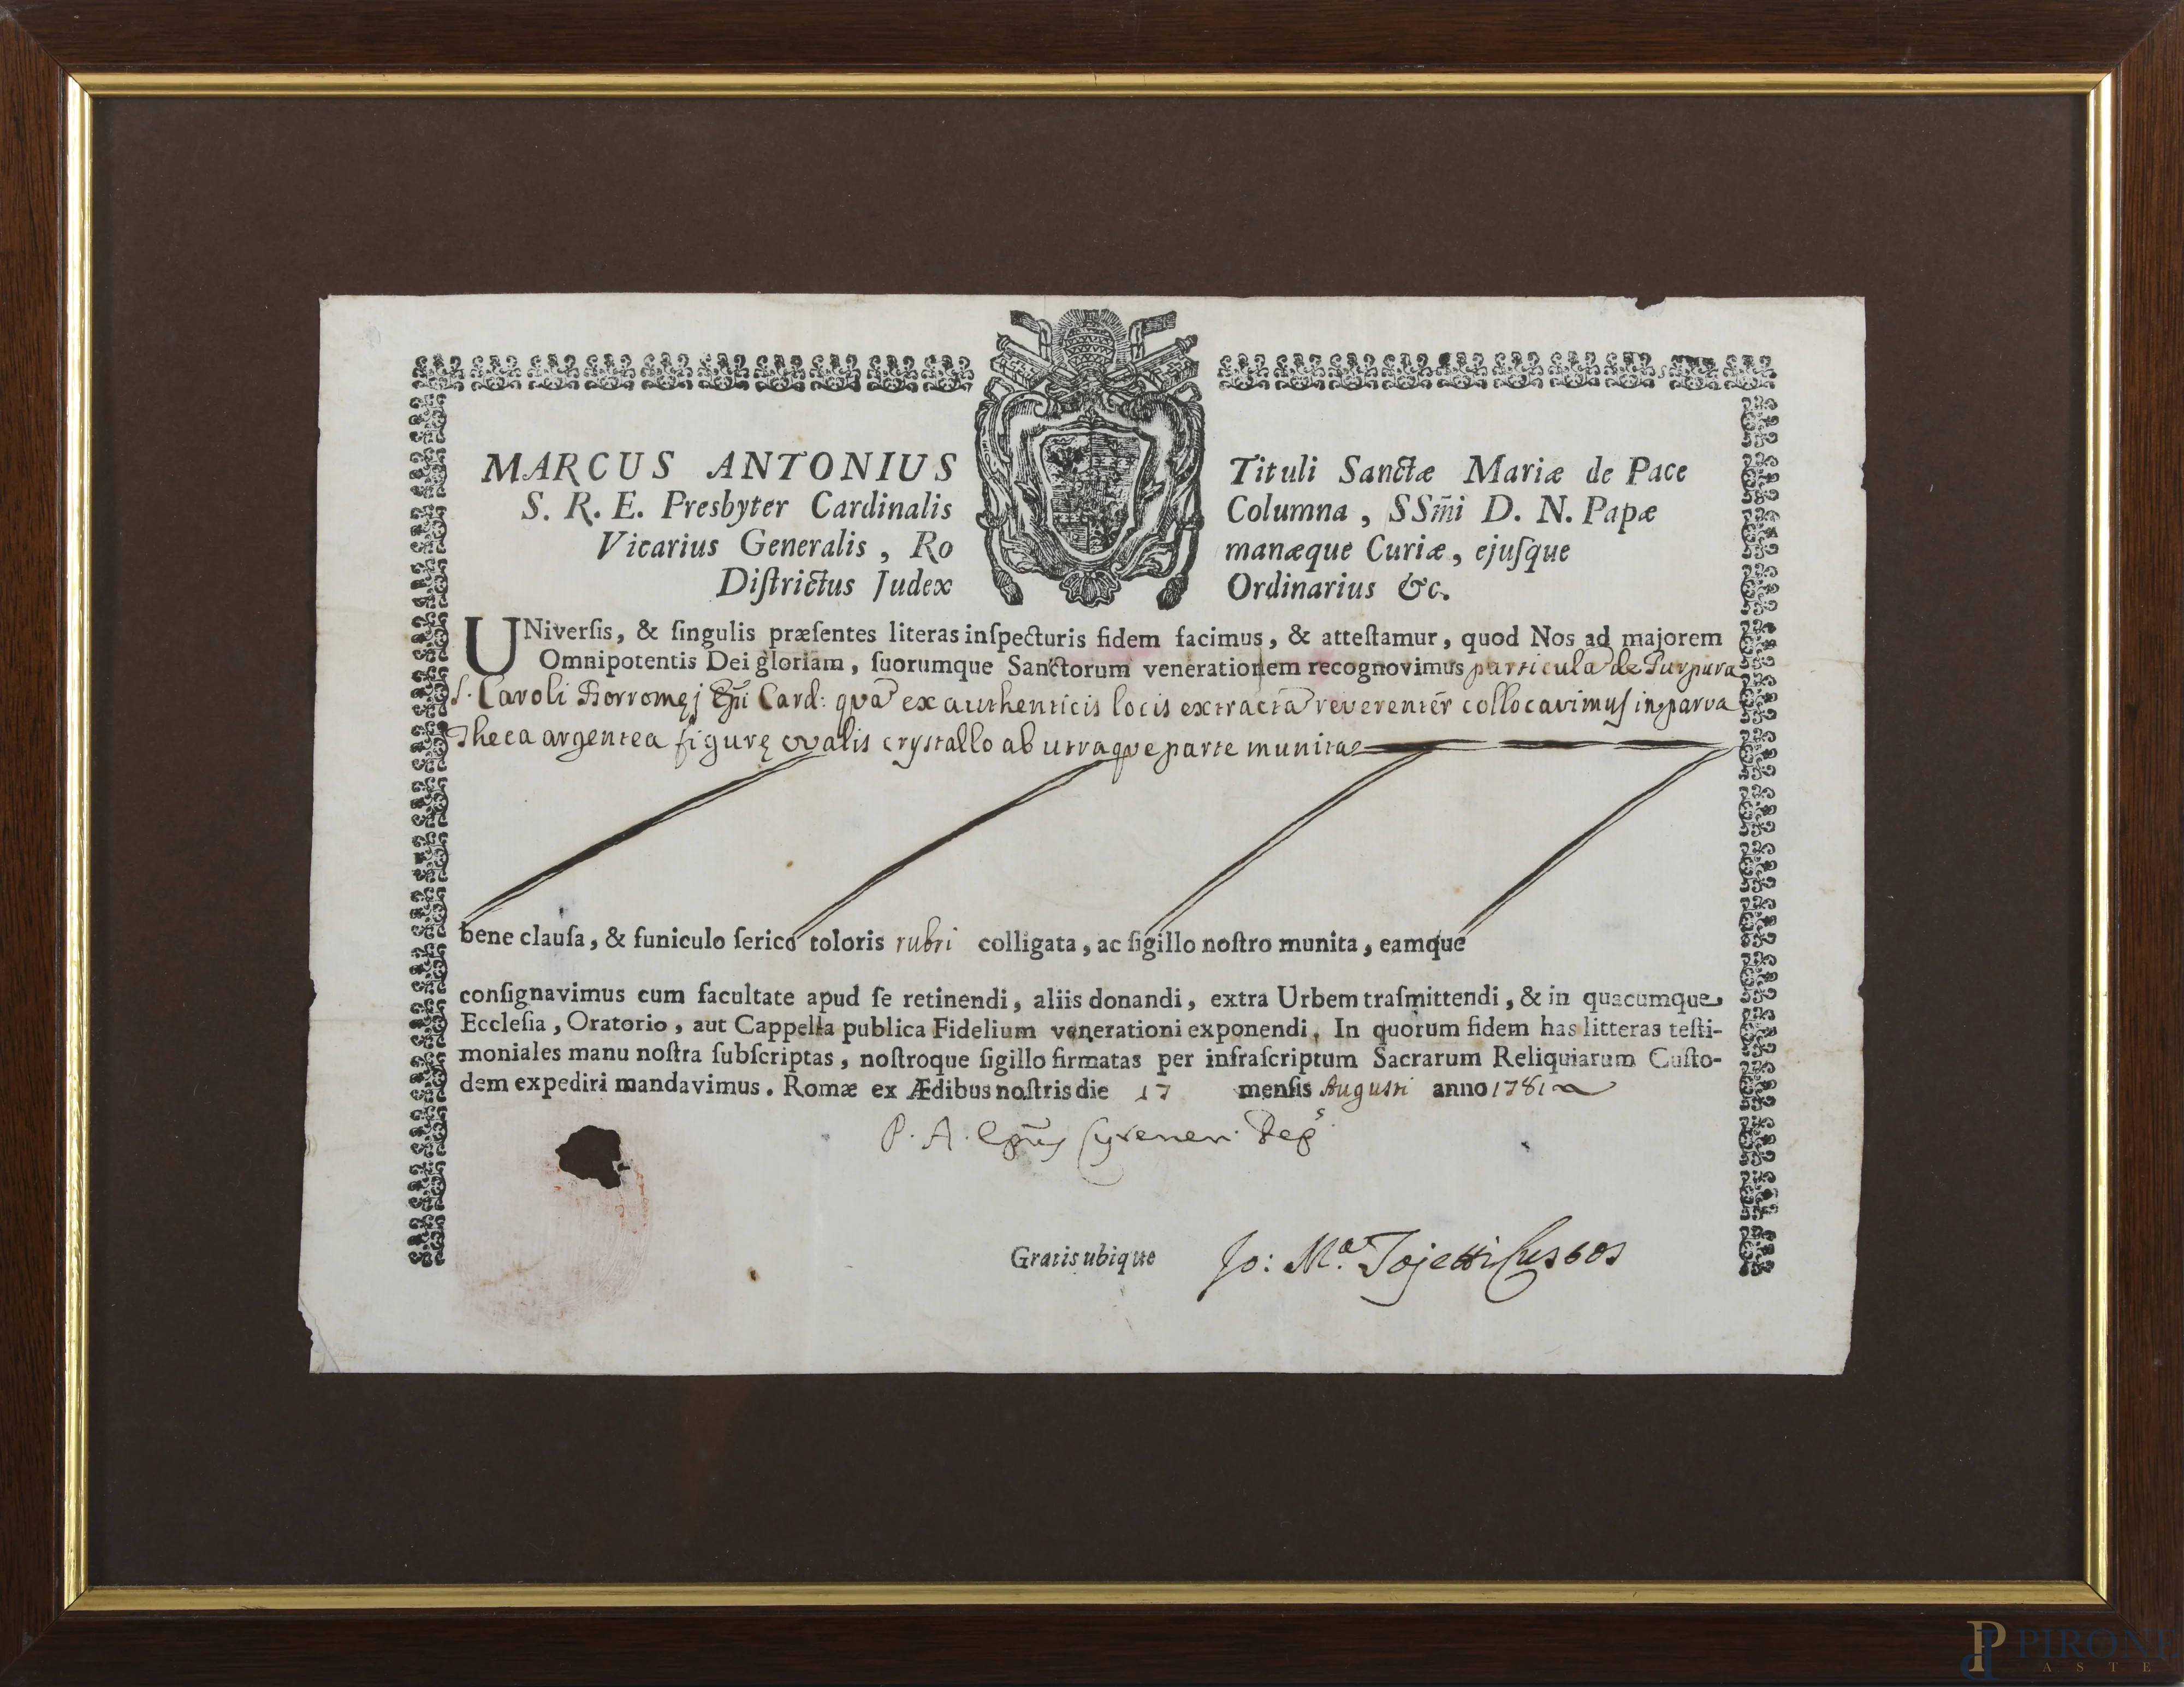 MARCUS ANTONIUS Tituli Sanctæ Mariæ de Pace
S. R. E. Presbyter Cardinalis Columna, SSm̃i D. N. Papæ
Vicarius Generalis, Ro manæque Curiæ, ejuſque
Diſtrictus Judex Ordinarius &c.
UNiverſis, & ſingulis præſentes literas inſpecturis fidem facimus, & atteſtamur, quod Nos ad majorem
Omnipotentis Dei gloriam, ſuorumque Sanctorum venerationem recognovimus particulã de Purpura
S. Caroli Borromęj Ep̃i Card: quã ex authenticis locis extractã reverentẽr collocavimus in parva
Theca argentea figurę ovalis crystallo ab utraque parte munita
bene clauſa, & funiculo ſerico coloris rubri colligata, ac ſigillo noſtro munita, eamque
conſignavimus cum facultate apud ſe retinendi, aliis donandi, extra Urbem traſmittendi, & in quacumque
Eccleſia, Oratorio, aut Cappella publica Fidelium venerationi exponendi. In quorum fidem has litteras teſti-
moniales manu noſtra ſubſcriptas, noſtroque ſigillo firmatas per infraſcriptum Sacrarum Reliquiarum Cuſto-
dem expediri mandavimus. Romæ ex Ædibus noſtris die 17 menſis Augusti anno 1781
P. A. Ep̃us Cyrenen. Deg.s
Gratis ubique Jo: M.a Tojetti Custos
PIRONE
ASTE